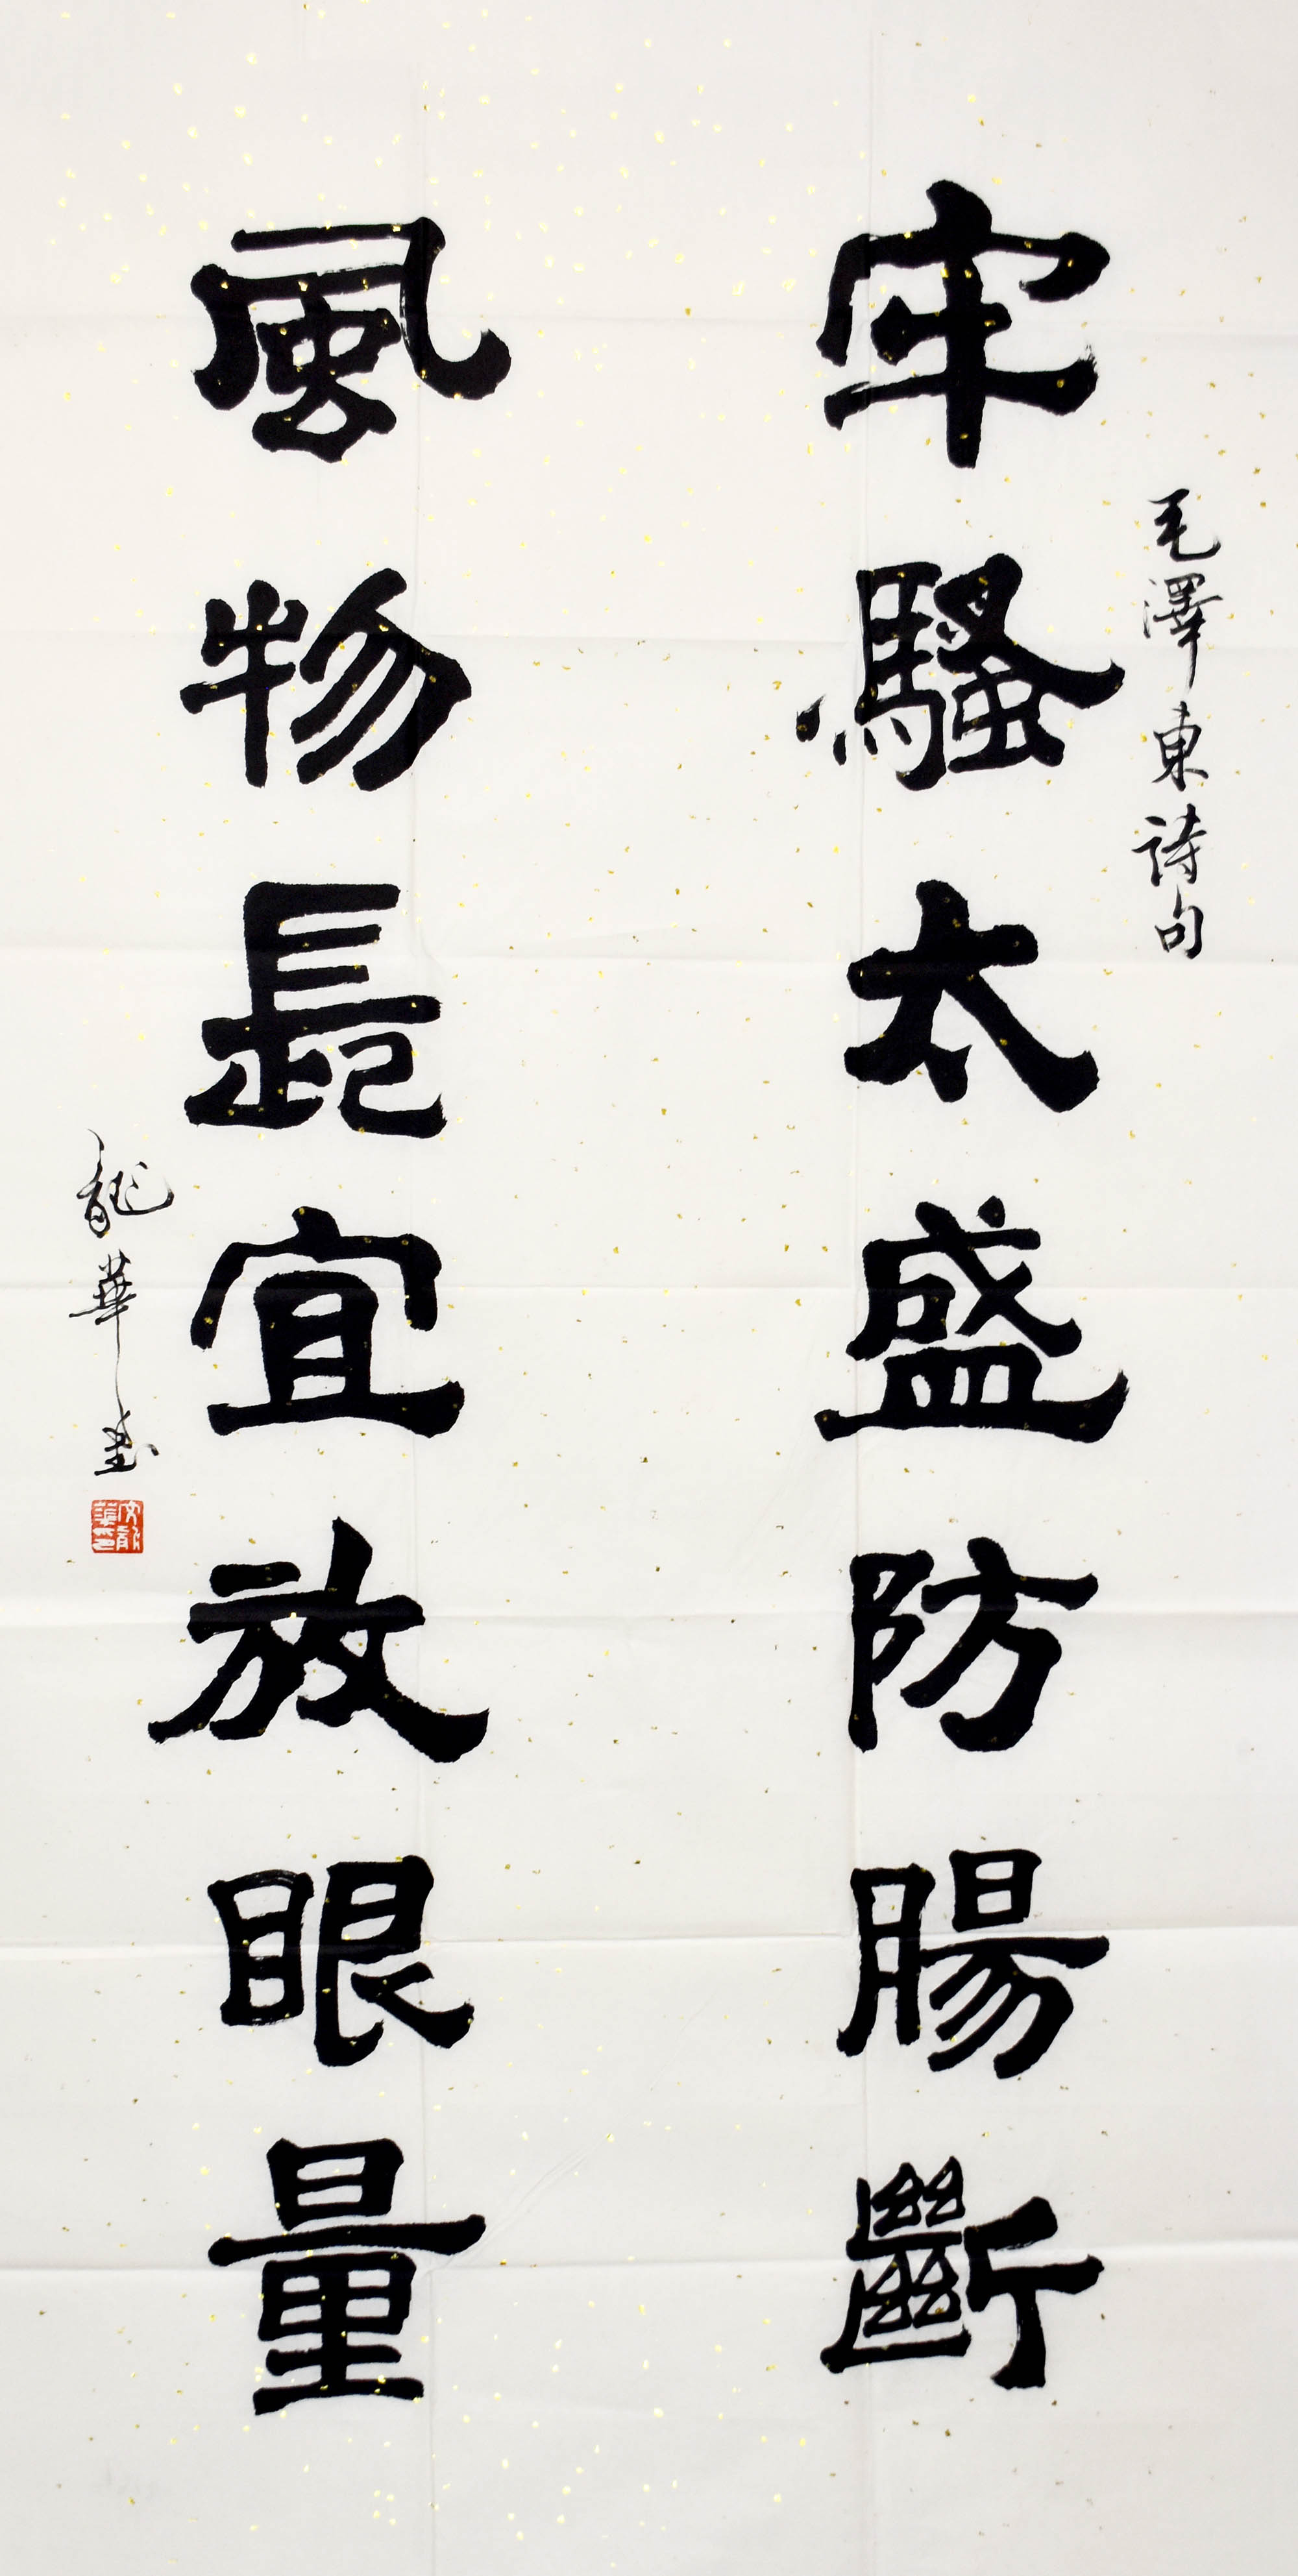 毛澤東詩句
牢騷太盛防腸斷
風物長宜放眼量
龍華書